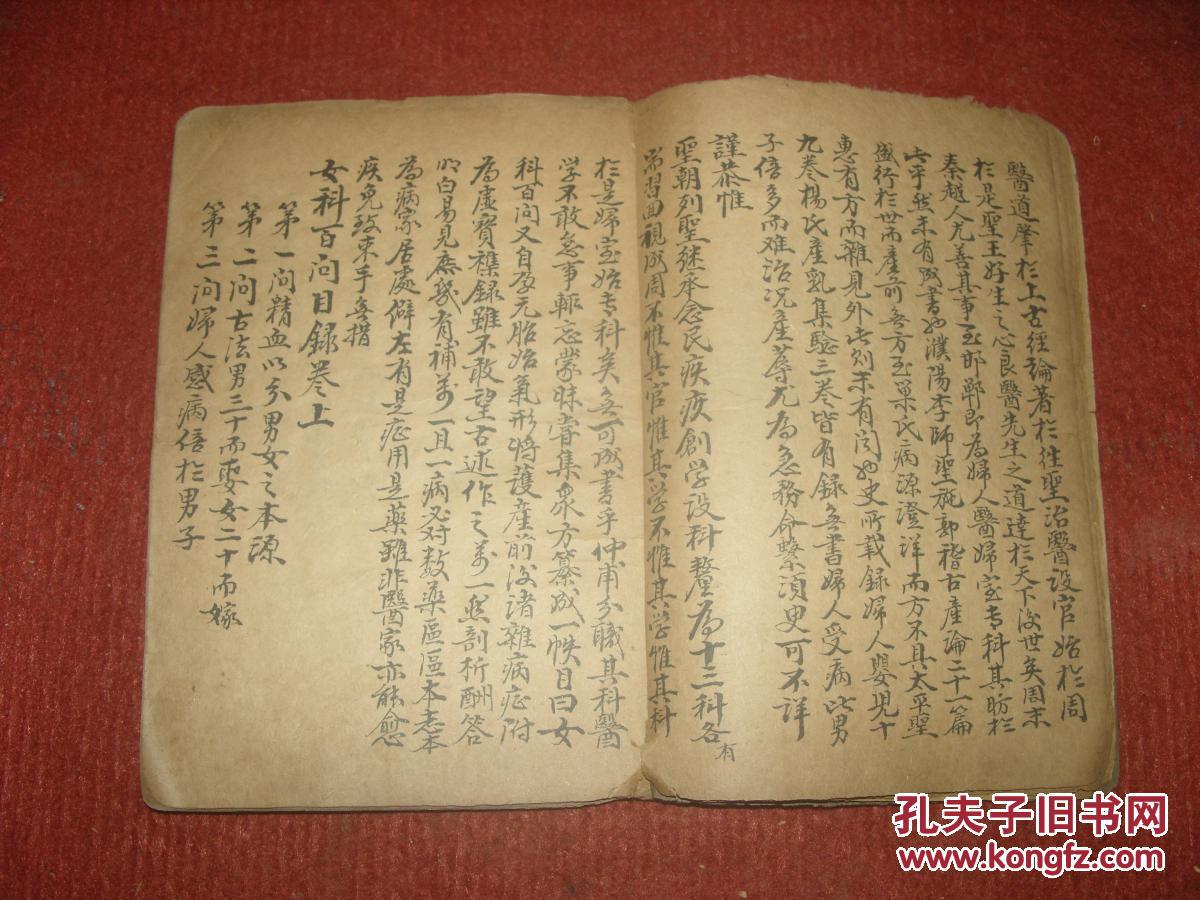 醫道肇於上古經論著於往聖治醫設官始於周
於是聖王好生之心良醫先生之道達於天下後世矣周末
秦越人尤善其事至邯鄲即為婦人醫婦室專科其昉於
此乎然未有成書也濮陽李師聖施郭稽古產論二十一篇
盛行於世而產前無方至巢氏病源證詳而方不具太平聖
惠有方而雜見外此則未有聞也史所載錄婦人嬰兒十
九卷楊氏產乳集驗三卷皆有錄無書婦人受病比男
子倍多而难治况產蓐尤為急務命繫須臾可不詳
謹恭惟
聖朝列聖继承念民疾疢創学設科釐為十三科各有
常習回視成周不惟其官惟其学不惟其学惟其科
於是婦室始专科矣無可成書乎仲甫分職其科醫
学不敢怠事輒忘蒙昧嘗集眾方纂成一帙目曰女
科百问又自孕元胎始氣形將護產前後諸雜病症附
為虛實襍録雖不敢望古述作之萬一然剖析酬答
明白易見庶幾有補萬一且一病必对数藥區區本志本
為病家居處僻左有是症用是藥雖非醫家亦能愈
疾免致束手無措
女科百问目録卷上
第一问精血以分男女之本源
第二问古法男三十而娶女二十而嫁
第三问婦人感病倍於男子
孔夫子旧书网
www.kongfz.com